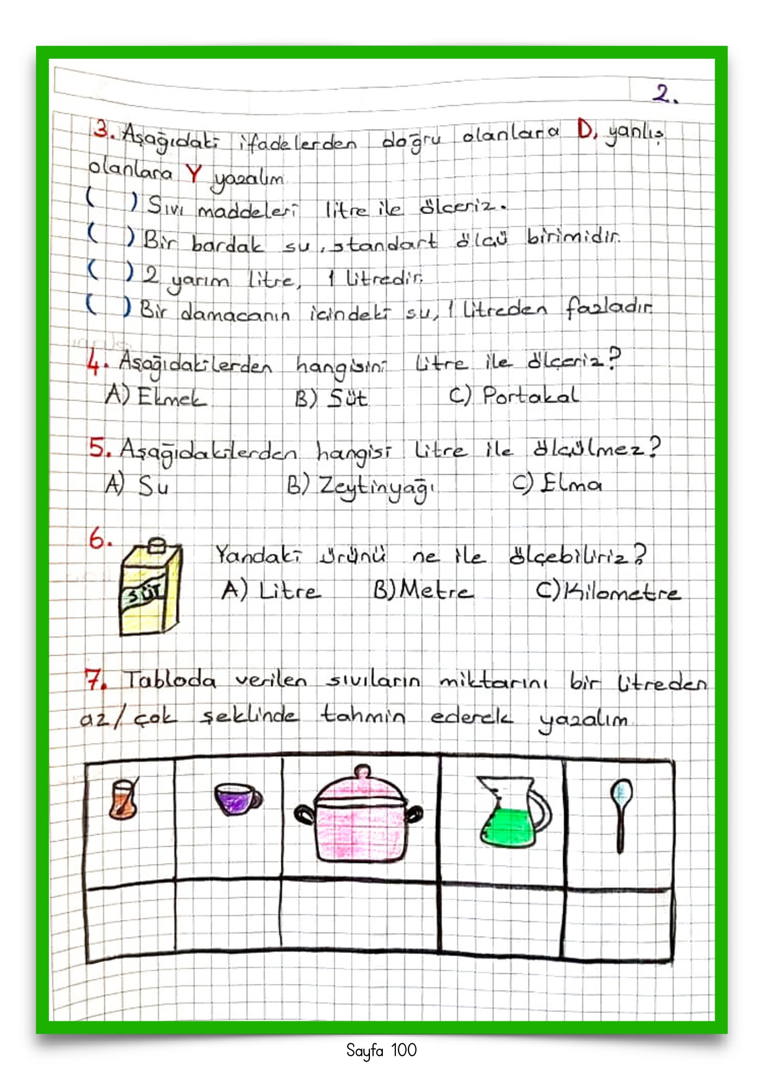 2.
3. Aşağıdaki ifadelerden doğru olanlara D, yanlış
olanlara Y yazalım.
( ) Sıvı maddeleri litre ile ölçeriz.
( ) Bir bardak su, standart ölçü birimidir.
( ) 2 yarım litre, 1 litredir.
( ) Bir damacanın içindeki su, 1 litreden fazladır.
4. Aşağıdakilerden hangisini litre ile ölçeriz?
A) Ekmek B) Süt C) Portakal
5. Aşağıdakilerden hangisi litre ile ölçülmez?
A) Su B) Zeytinyağı C) Elma
6.
Yandaki ürünü ne ile ölçebiliriz?
SÜT
A) Litre B) Metre C) Kilometre
7. Tabloda verilen sıvıların miktarını bir litreden
az / çok şeklinde tahmin ederek yazalım.
Sayfa 100